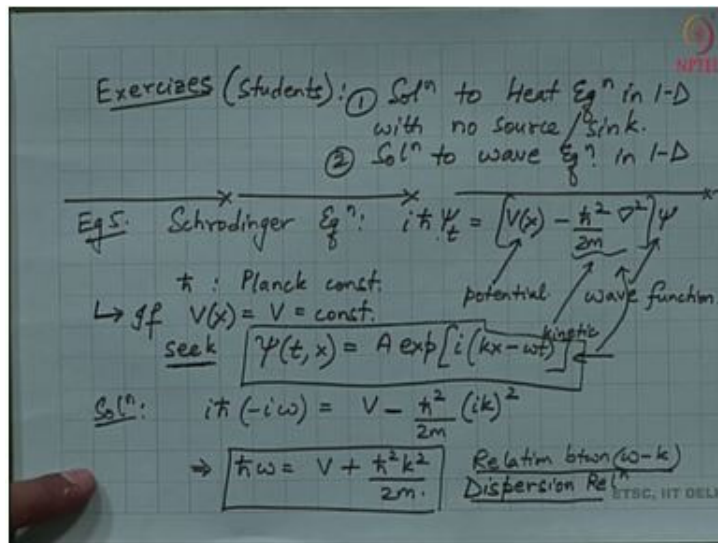 NPTEL
Exercizes (Students): ① Solⁿ to Heat Eqⁿ in 1-D
with no source/sink.
② Solⁿ to wave Eqⁿ. in 1-D
Eg 5. Schrodinger Eqⁿ: iħ Ψ_t = [V(x) - ħ²/2m ∇²]Ψ
ħ : Planck const.
potential wave function
↳ If V(x) = V = const.
kinetic
seek Ψ(t, x) = A exp[i(kx - ωt)] ←
Solⁿ: iħ(-iω) = V - ħ²/2m (ik)²
⇒ ħω = V + ħ²k²/2m.
Relation btwn (ω-k)
Dispersion Relⁿ
ETSC, IIT DELHI